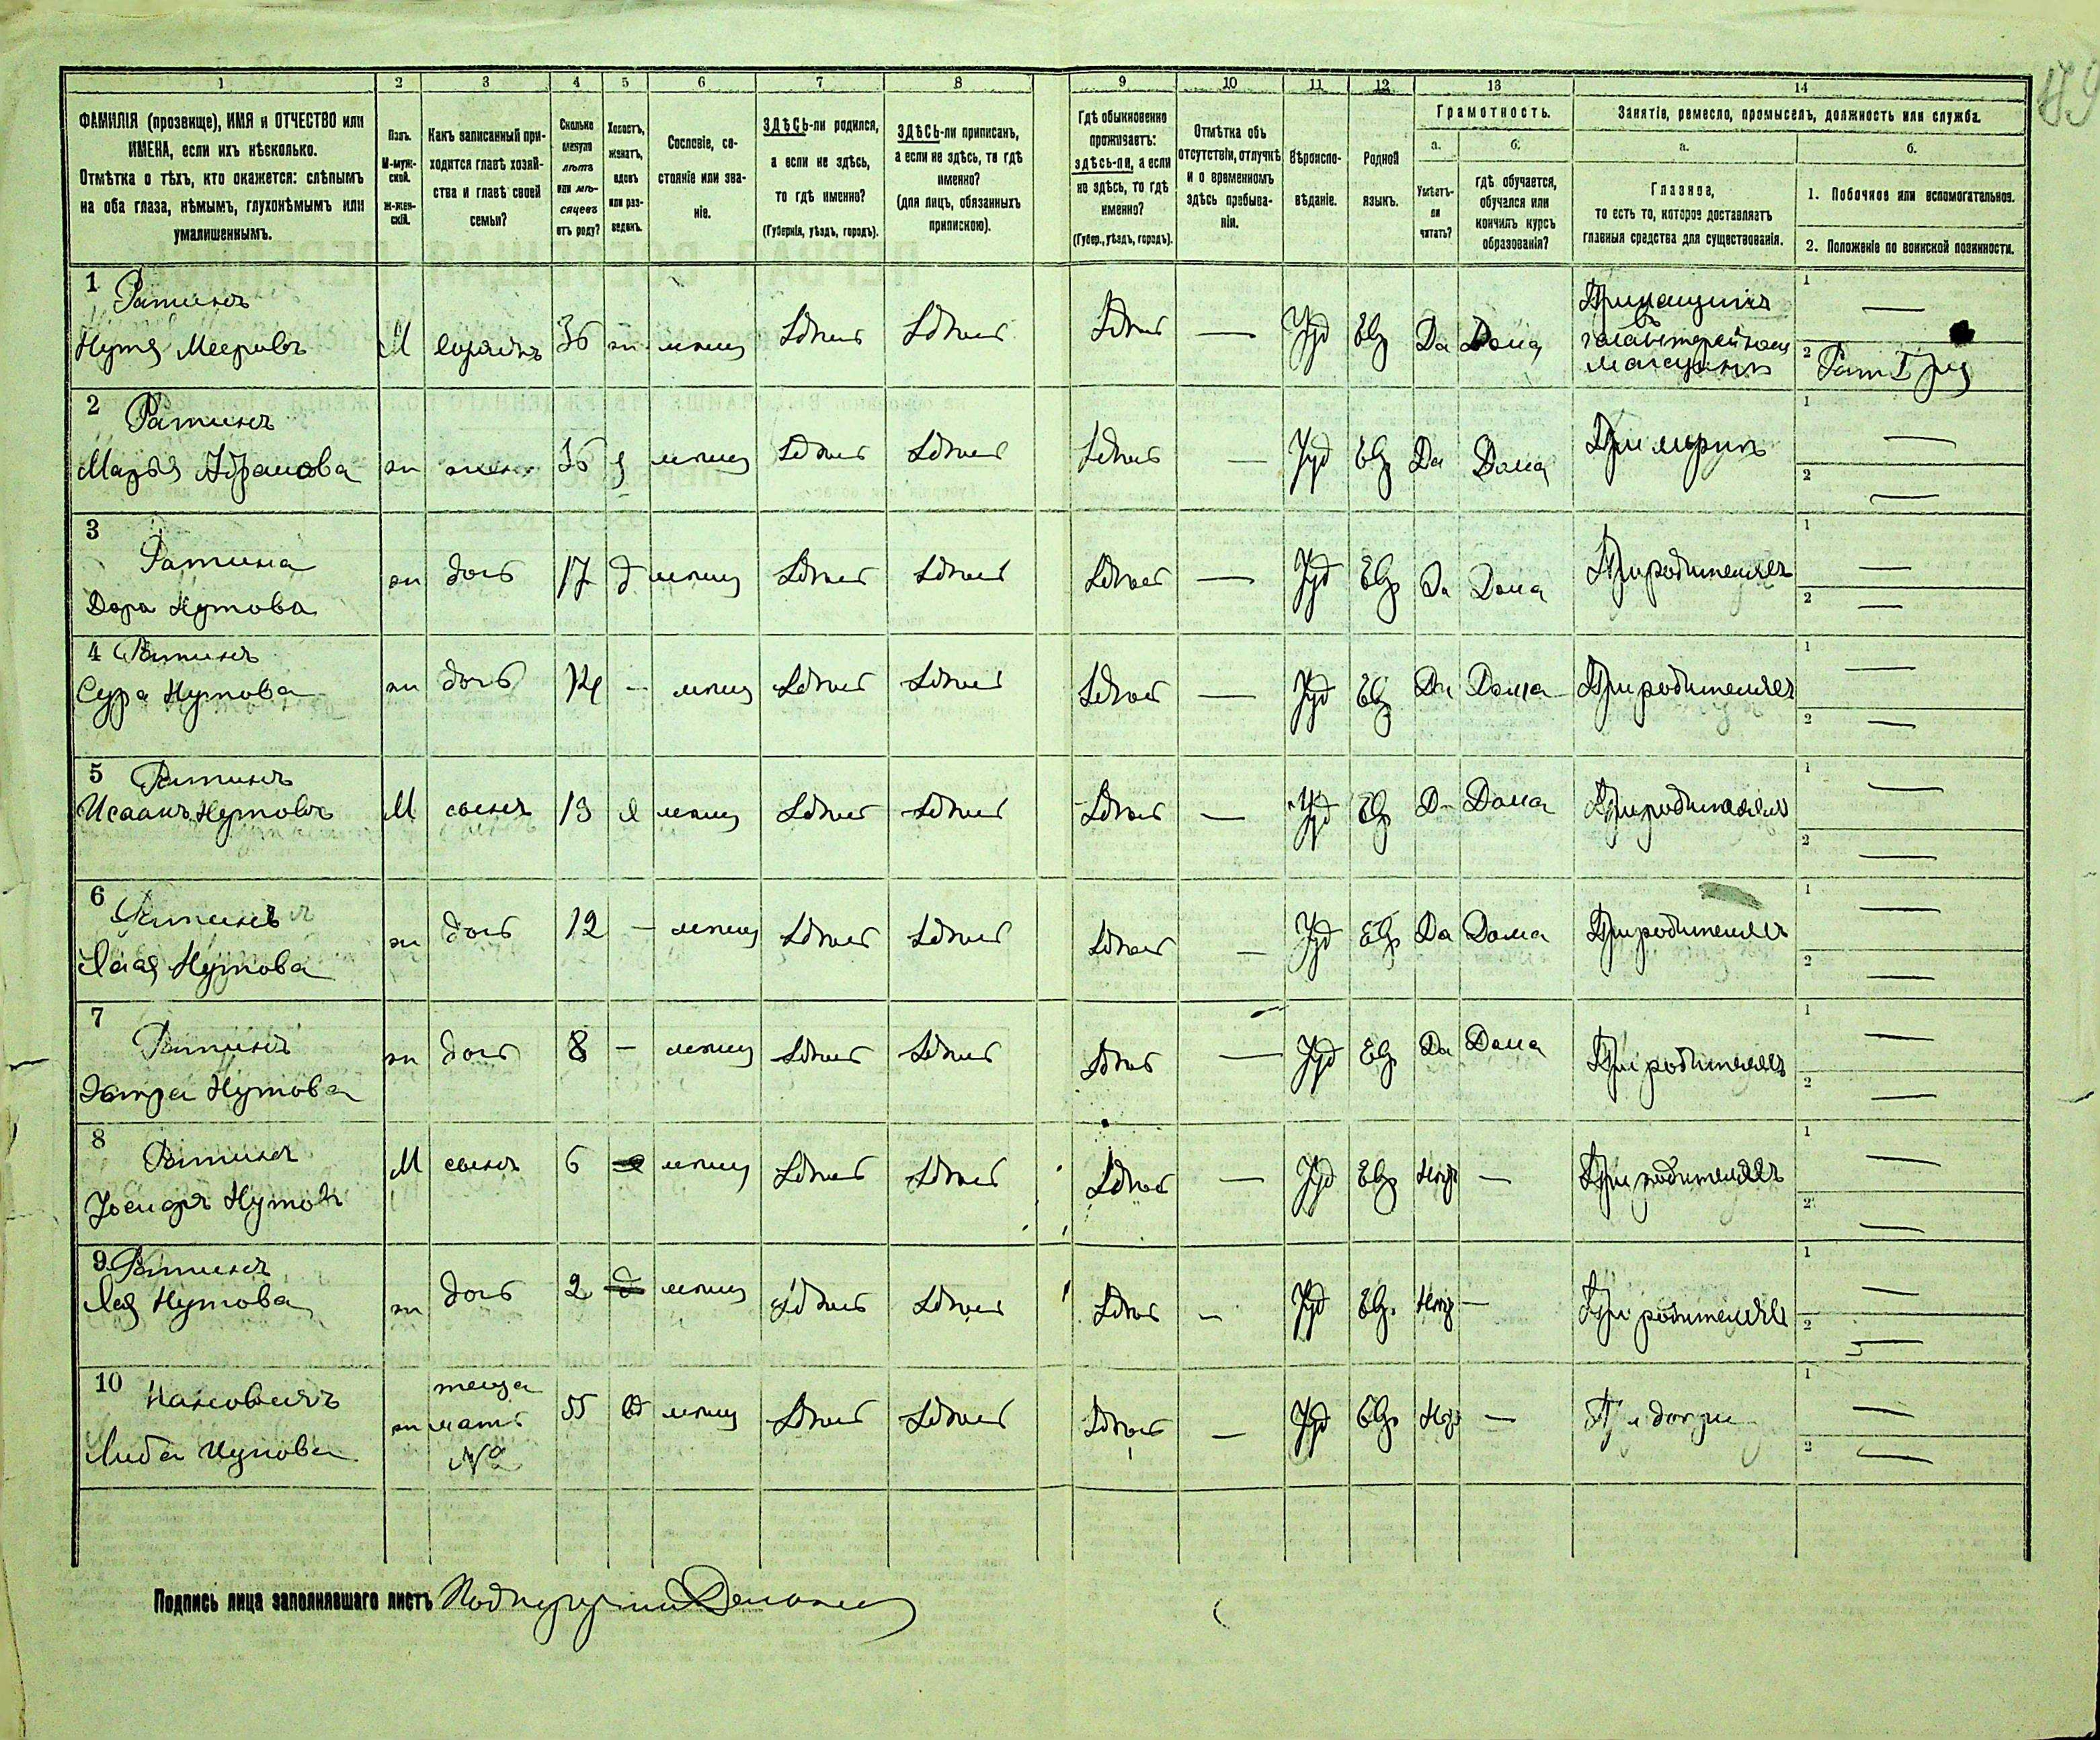 49
1 2 3 4 5 6 7 8 9 10 11 12 13 14
ФАМИЛІЯ (прозвище), ИМЯ и ОТЧЕСТВО или
ИМЕНА, если ихъ нѣсколько.
Отмѣтка о тѣхъ, кто окажется: слѣпымъ
на оба глаза, нѣмымъ, глухонѣмымъ или
умалишеннымъ.
Полъ.
М-муж-
ской.
Ж-жен-
скій.
Какъ записанный при-
ходится главѣ хозяй-
ства и главѣ своей
семьи?
Сколько
минуло
лѣтъ
или мѣ-
сяцевъ
отъ роду?
Холостъ,
женатъ,
вдовъ
или раз-
веденъ.
Сословіе, со-
стояніе или зва-
ніе.
ЗДѢСЬ-ли родился,
а если не здѣсь,
то гдѣ именно?
(Губернія, уѣздъ, городъ).
ЗДѢСЬ-ли приписанъ,
а если не здѣсь, то гдѣ
именно?
(для лицъ, обязанныхъ
припискою).
Гдѣ обыкновенно
проживаетъ:
здѣсь-ли, а если
не здѣсь, то гдѣ
именно?
(Губер., уѣздъ, городъ).
Отмѣтка объ
отсутствіи, отлучкѣ
и о временномъ
здѣсь пребыва-
ніи.
Вѣроиспо-
вѣданіе.
Родной
языкъ.
Грамотность.
а.
Умѣетъ-
ли
читать?
б.
гдѣ обучается,
обучался или
кончилъ курсъ
образованія?
Занятіе, ремесло, промыселъ, должность или служба.
а.
Главное,
то есть то, которое доставляетъ
главныя средства для существованія.
б.
1. Побочное или вспомогательное.
2. Положеніе по воинской повинности.
1 Ратинъ
Нутя Мееровъ М хозяинъ 36 ж мѣщ Здѣсь Здѣсь Здѣсь — Іуд Евр Да Дома
Прикащикъ
въ
галантерейномъ
магазинѣ
1 —
2 Рат I рз
2 Ратинъ
Марья Абрамова ж жена 36 з мѣщ Здѣсь Здѣсь Здѣсь — Іуд Евр Да Дома При мужѣ 1 —
2 —
3 Ратина
Дора Нутова ж дочь 17 д мѣщ Здѣсь Здѣсь Здѣсь — Іуд Евр Да Дома При родителяхъ 1 —
2 —
4 Ратинъ
Сура Нутова ж дочь 14 — мѣщ Здѣсь Здѣсь Здѣсь — Іуд Евр Да Дома При родителяхъ 1 —
2 —
5 Ратинъ
Исаакъ Нутовъ М сынъ 13 х мѣщ Здѣсь Здѣсь Здѣсь — Іуд Евр Да Дома При родителяхъ 1 —
2 —
6 Ратинъ
Нутова ж дочь 12 — мѣщ Здѣсь Здѣсь Здѣсь — Іуд Евр Да Дома При родителяхъ 1 —
2 —
7 Ратинъ
Эстра Нутова ж дочь 8 — мѣщ Здѣсь Здѣсь Здѣсь — Іуд Евр Да Дома При родителяхъ 1 —
2 —
8 Ратинъ
Іосифъ Нутовъ М сынъ 6 мѣщ Здѣсь Здѣсь Здѣсь — Іуд Евр Негр — При родителяхъ 1 —
2 —
9 Ратинъ
Лея Нутова ж дочь 2 д мѣщ Здѣсь Здѣсь Здѣсь — Іуд Евр. Негр — При родителяхъ 1 —
2 —
10 теща
Либа ж мать 55 вд мѣщ Здѣсь Здѣсь Здѣсь — Іуд Евр Негр — При дочери 1 —
№2 2 —
Подпись лица заполнявшаго листъ